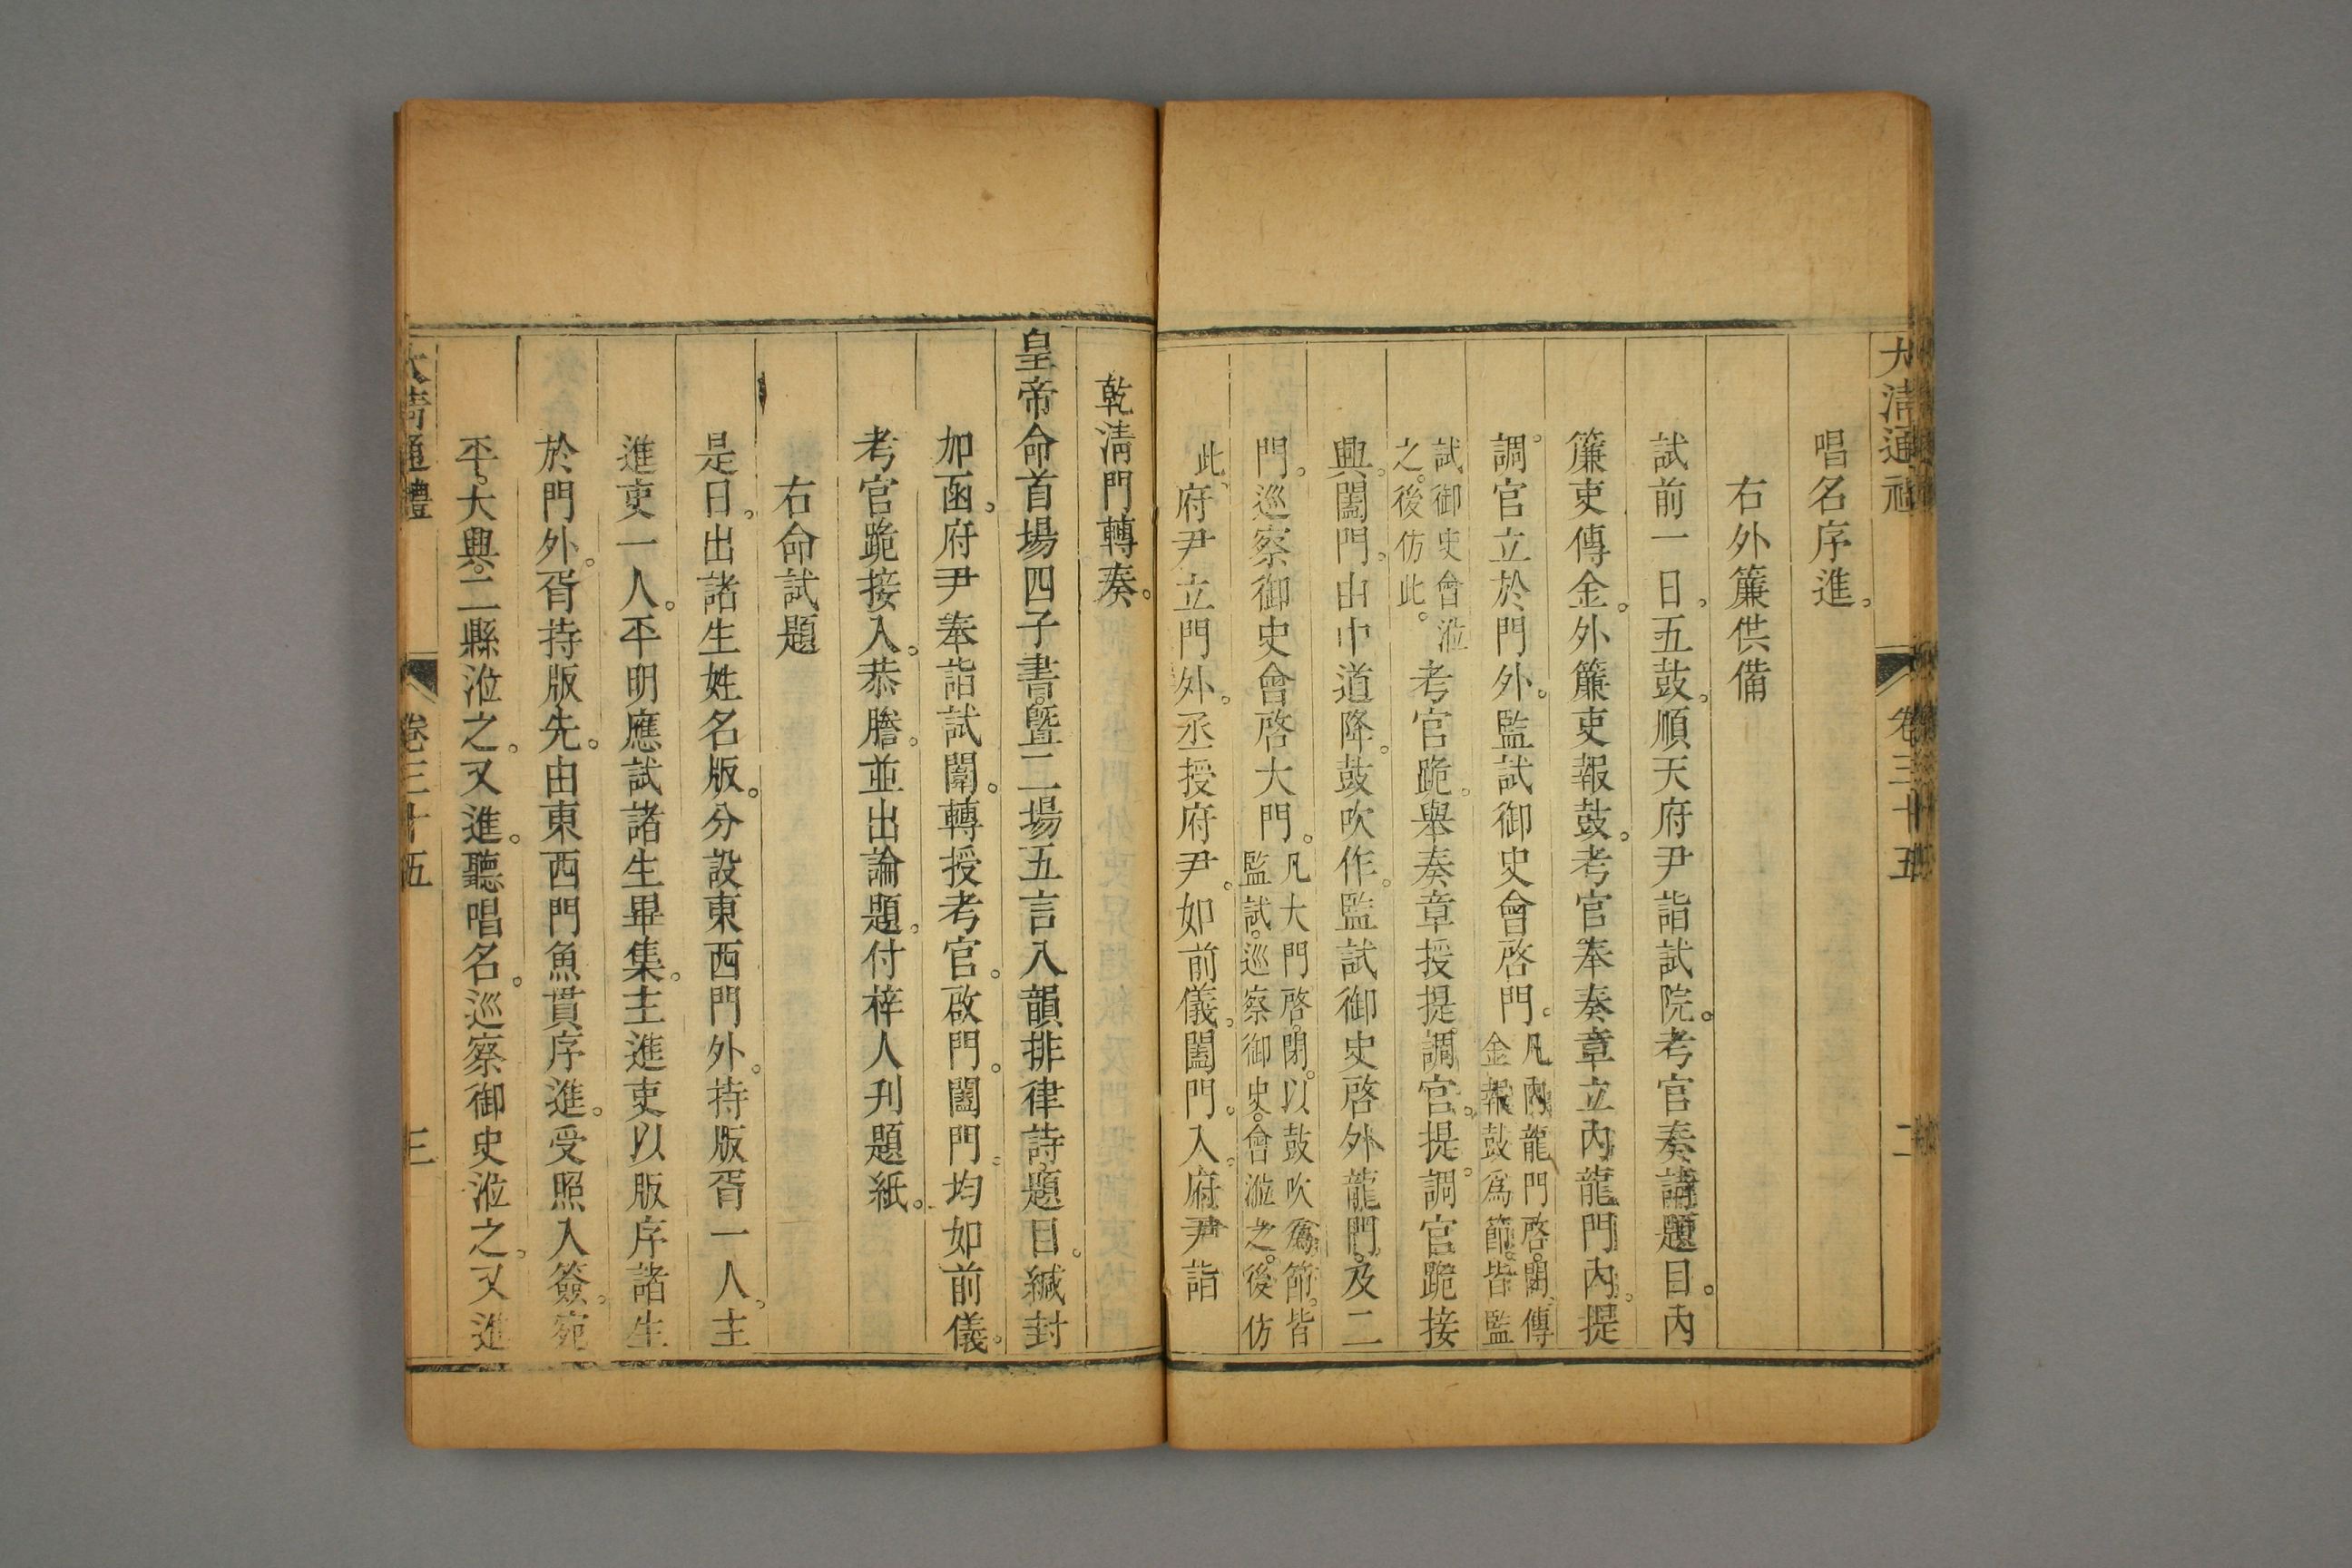 大清通禮 卷三十五 二
唱名序進。
右外簾供備
試前一日。五鼓。順天府尹詣試院。考官奏請題目。內
簾吏傳金。外簾吏報鼓。考官奉奏章立內龍門內。提
調。官立於門外。監試御史會啓門。凡內龍門啓。閉。傳
金報鼓爲節。皆監
試御史會涖
之。後仿此。考官跪。舉奏章授提調官。提調官跪接
興。闔門。由中道降。鼓吹作。監試御史啓外龍門。及二
門。巡察御史會啓大門。凡大門啓。閉。以鼓吹爲節。皆
監試。巡察御史。會涖之。後仿
此。府尹立門外。丞授府尹。如前儀。闔門。入。府尹詣
乾淸門轉奏。
皇帝命首場四子書。曁二場五言八韻排律詩題目。緘封
加函。府尹奉詣試闈。轉授考官。啟門。闔門。均如前儀。
考官跪接入。恭謄。並出論題。付梓人刋題紙。
右命試題
是日。出諸生姓名版。分設東西門外。持版胥一人。主
進吏一人。平明應試諸生畢集。主進吏以版序諸生
於門外。胥持版先。由東西門魚貫序進。受照入簽。宛
平。大興。二縣涖之。又進。聽唱名。巡察御史涖之。又進
大清通禮 卷三十五 三